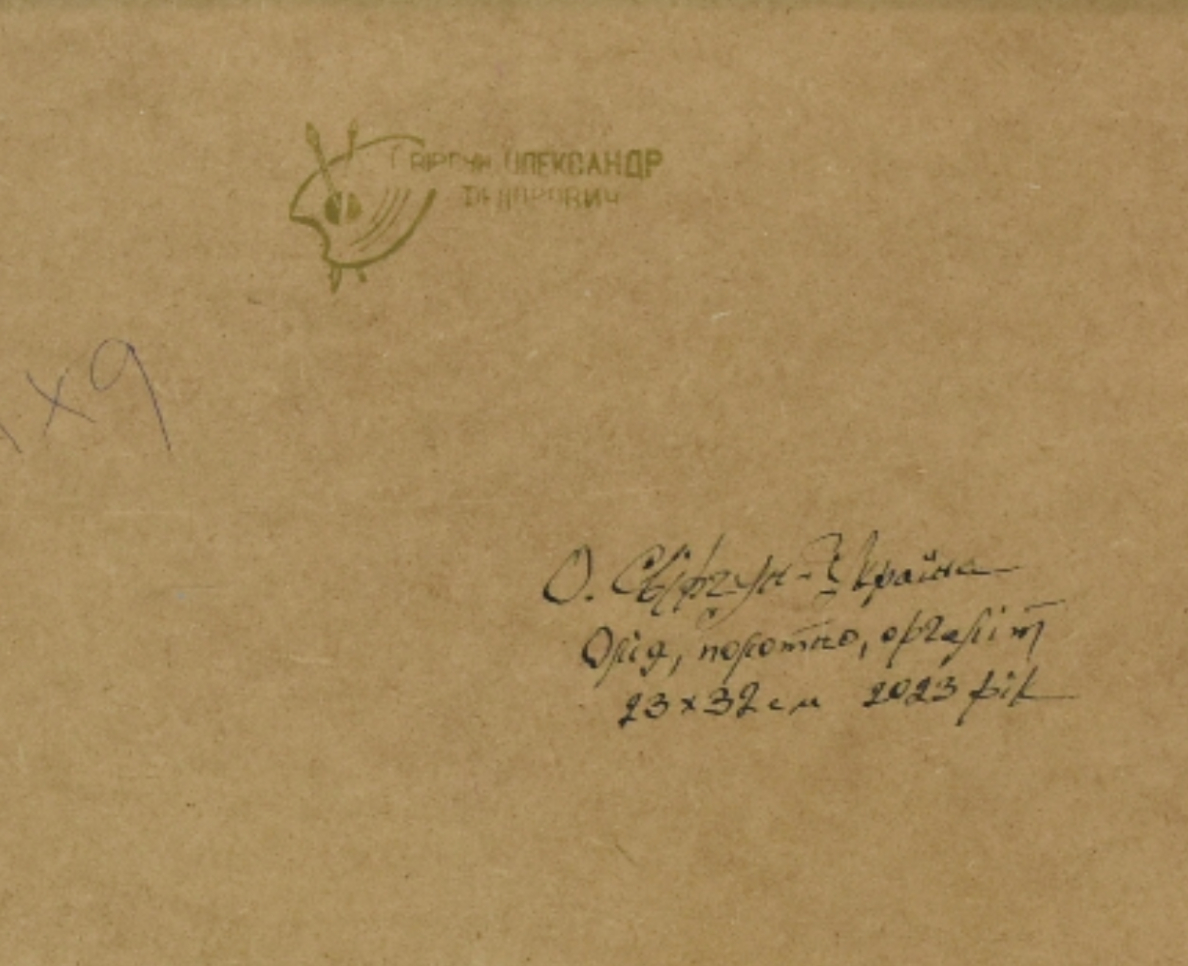 СВІРГУН ОЛЕКСАНДР
ФЕДОРОВИЧ
x9
О. Свіргун - Україна
Олія, полотно, оргаліт
23x32 см 2023 рік